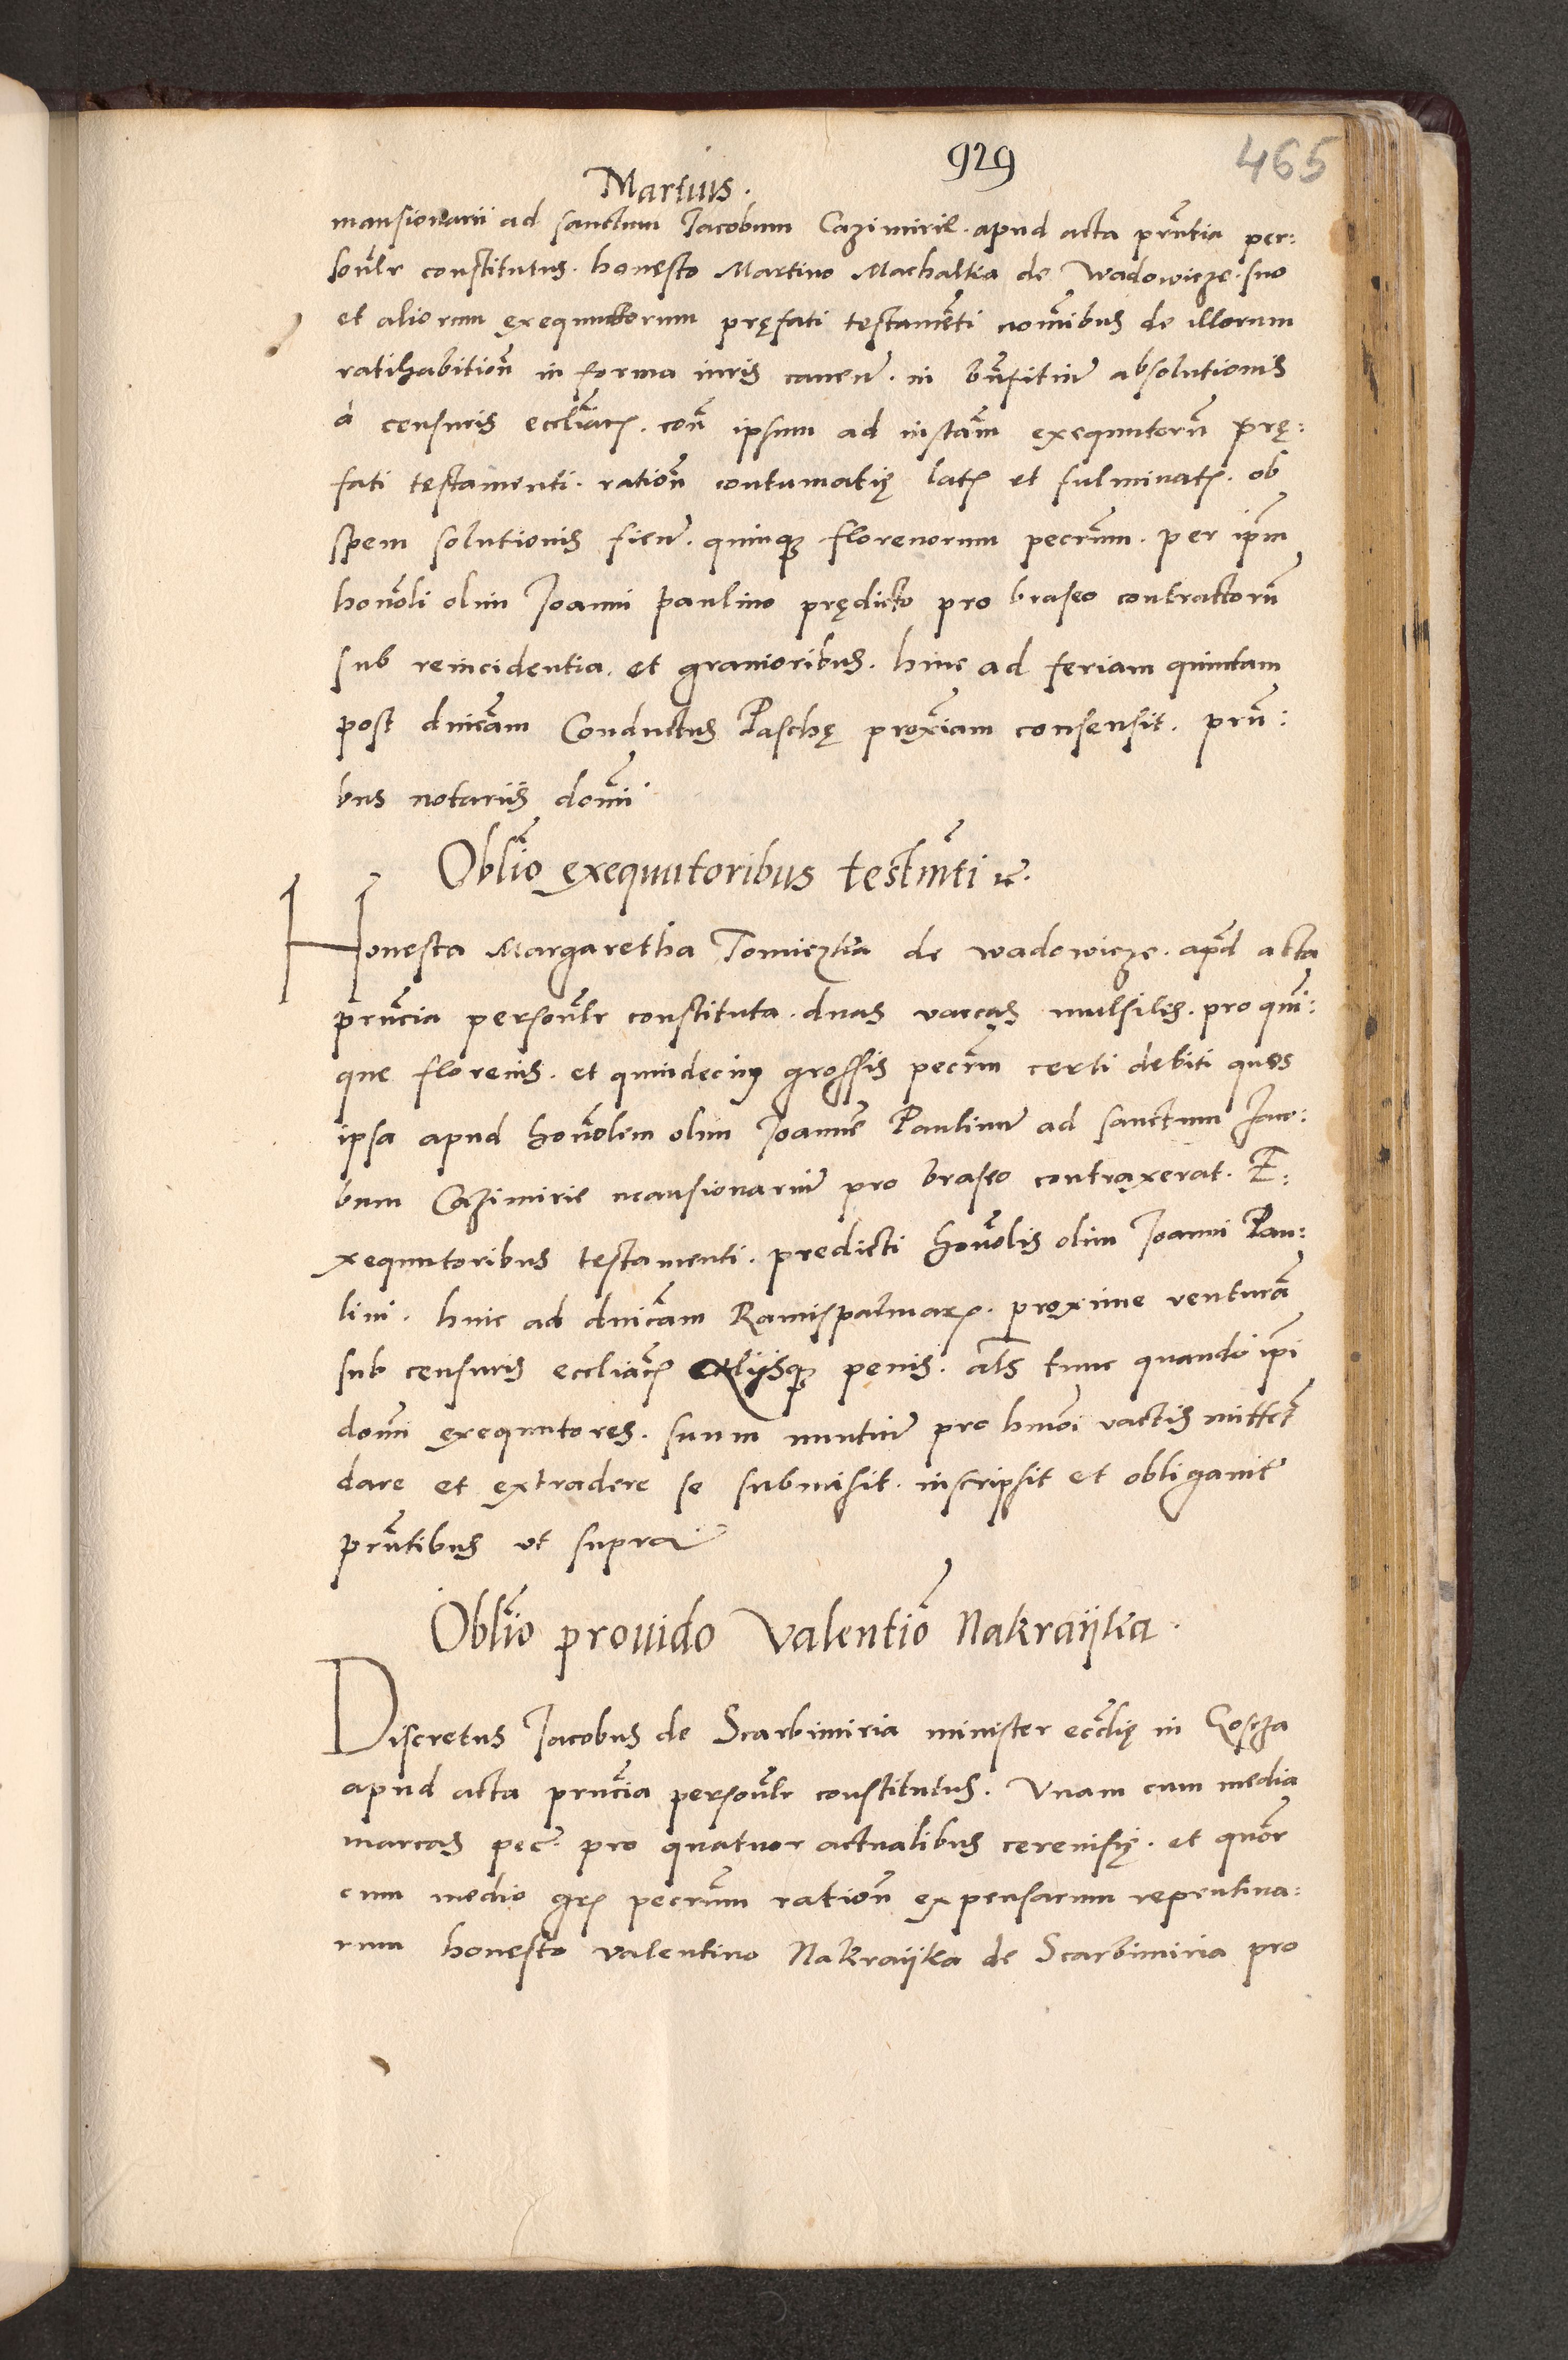 929
465
Martius.
mansionarii ad sanctum Jacobum Cazimirię. apud acta prn̄tia per:
sonlr̄ constitutus. honesto Martino Machaltia de Wadowicze. suo
et aliorum exequutorum pręfati testamēti nom̄ibus de illorum
ratihabitioñ in forma iuris cauen̄. in bn̄fitiū absolutionis
à censuris eccl̄iaꝝ. coñ ipsum ad instam̄ exequutorū prę:
fati testamenti. ratioñ contumatię latꝝ et fulminatꝝ. ob
spem solutionis fien̄. quinqꝫ florenorum pecr̄um. per ip̄m
hon̄oli olim Joanni paulino prędicto pro braseo contractorū
sub reincidentia. et grauioribus. hinc ad feriam quintam
post dnīcam Conductus Paschę prox̄iam consensit. prn̄:
bus notariis domī
Obl̄io exequutoribus testm̄ti ⁊c̄.
Honesta Margaretha Tomiczka de wadowicze. apd̄ acta
prn̄cia personlr̄ constituta. duas vaccas mulsiles. pro qui:
que florenis. et quindecim grossis pecr̄um certi debiti quos
ipsa apud hon̄olem olim Joannē Paulinū ad sanctum Jaco:
bum Cazimirię mansionariū pro braseo contraxerat. E:
xequutoribus testamenti. predicti hon̄olis olim Joanni Pau:
lini. hinc ad dnīcam Ramispalmaꝝ. proxime venturā
sub censuris eccl̄iacꝭ aliisqꝫ penis. al̄s tunc quando ip̄i
domī exequutores. suum nuntiū pro hm̄oi vactis mittet̄
dare et extradere se submisit. inscripsit et obligauit
prn̄tibus vt supra
Obl̄io prouido Valentiō Nakraijka.
Discretus Jacobus de Scarbimiria minister eccl̄ię in Goscza
apud acta prn̄cia personlr̄ constitutus. Vnam cum media
marcas pec̄. pro quatuor actualibus cereuisię. et quōr
cum medio grꝭ pecr̄um ratioñ expensarum repentina:
rum honesto valentino Nakraijka de Scarbimiria pro